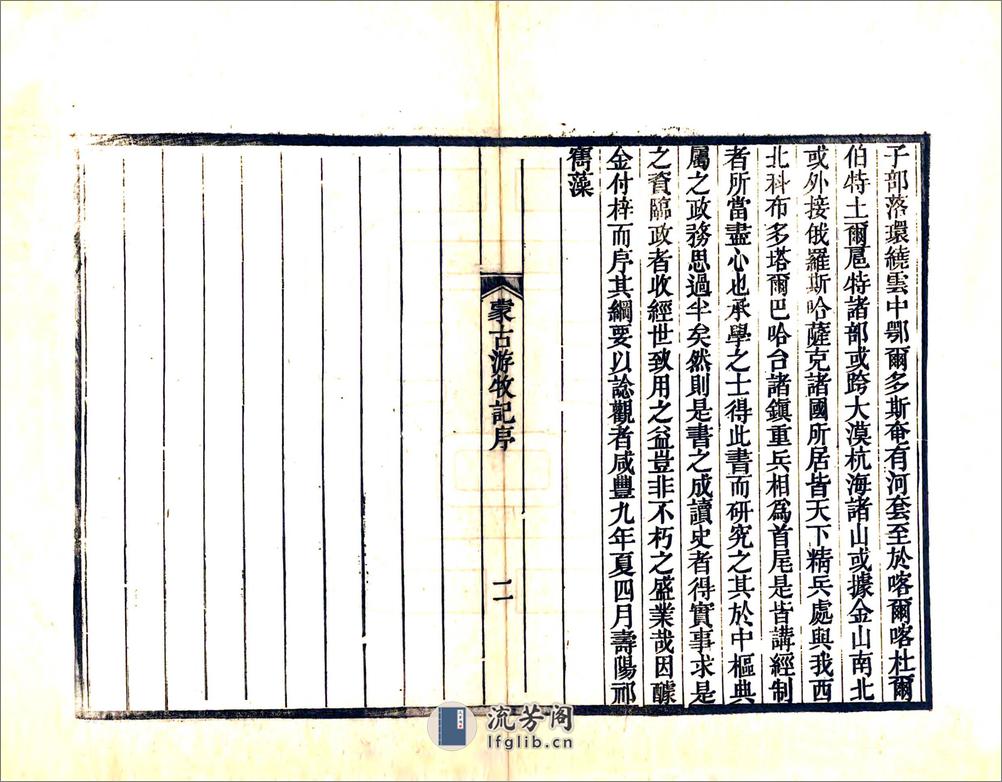 子部落環繞雲中鄂爾多斯奄有河套至於喀爾喀杜爾
伯特土爾扈特諸部或跨大漠杭海諸山或據金山南北
或外接俄羅斯哈薩克諸國所居皆天下精兵處與我西
北科布多塔爾巴哈台諸鎮重兵相為首尾是皆講經制
者所當盡心也承學之士得此書而研究之其於中樞典
屬之政務思過半矣然則是書之成讀史者得實事求是
之資臨政者收經世致用之益豈非不朽之盛業哉因醵
金付梓而序其綱要以諗觀者咸豐九年夏四月壽陽祁
寯藻
蒙古游牧記序
二
流芳阁
lfglib.cn